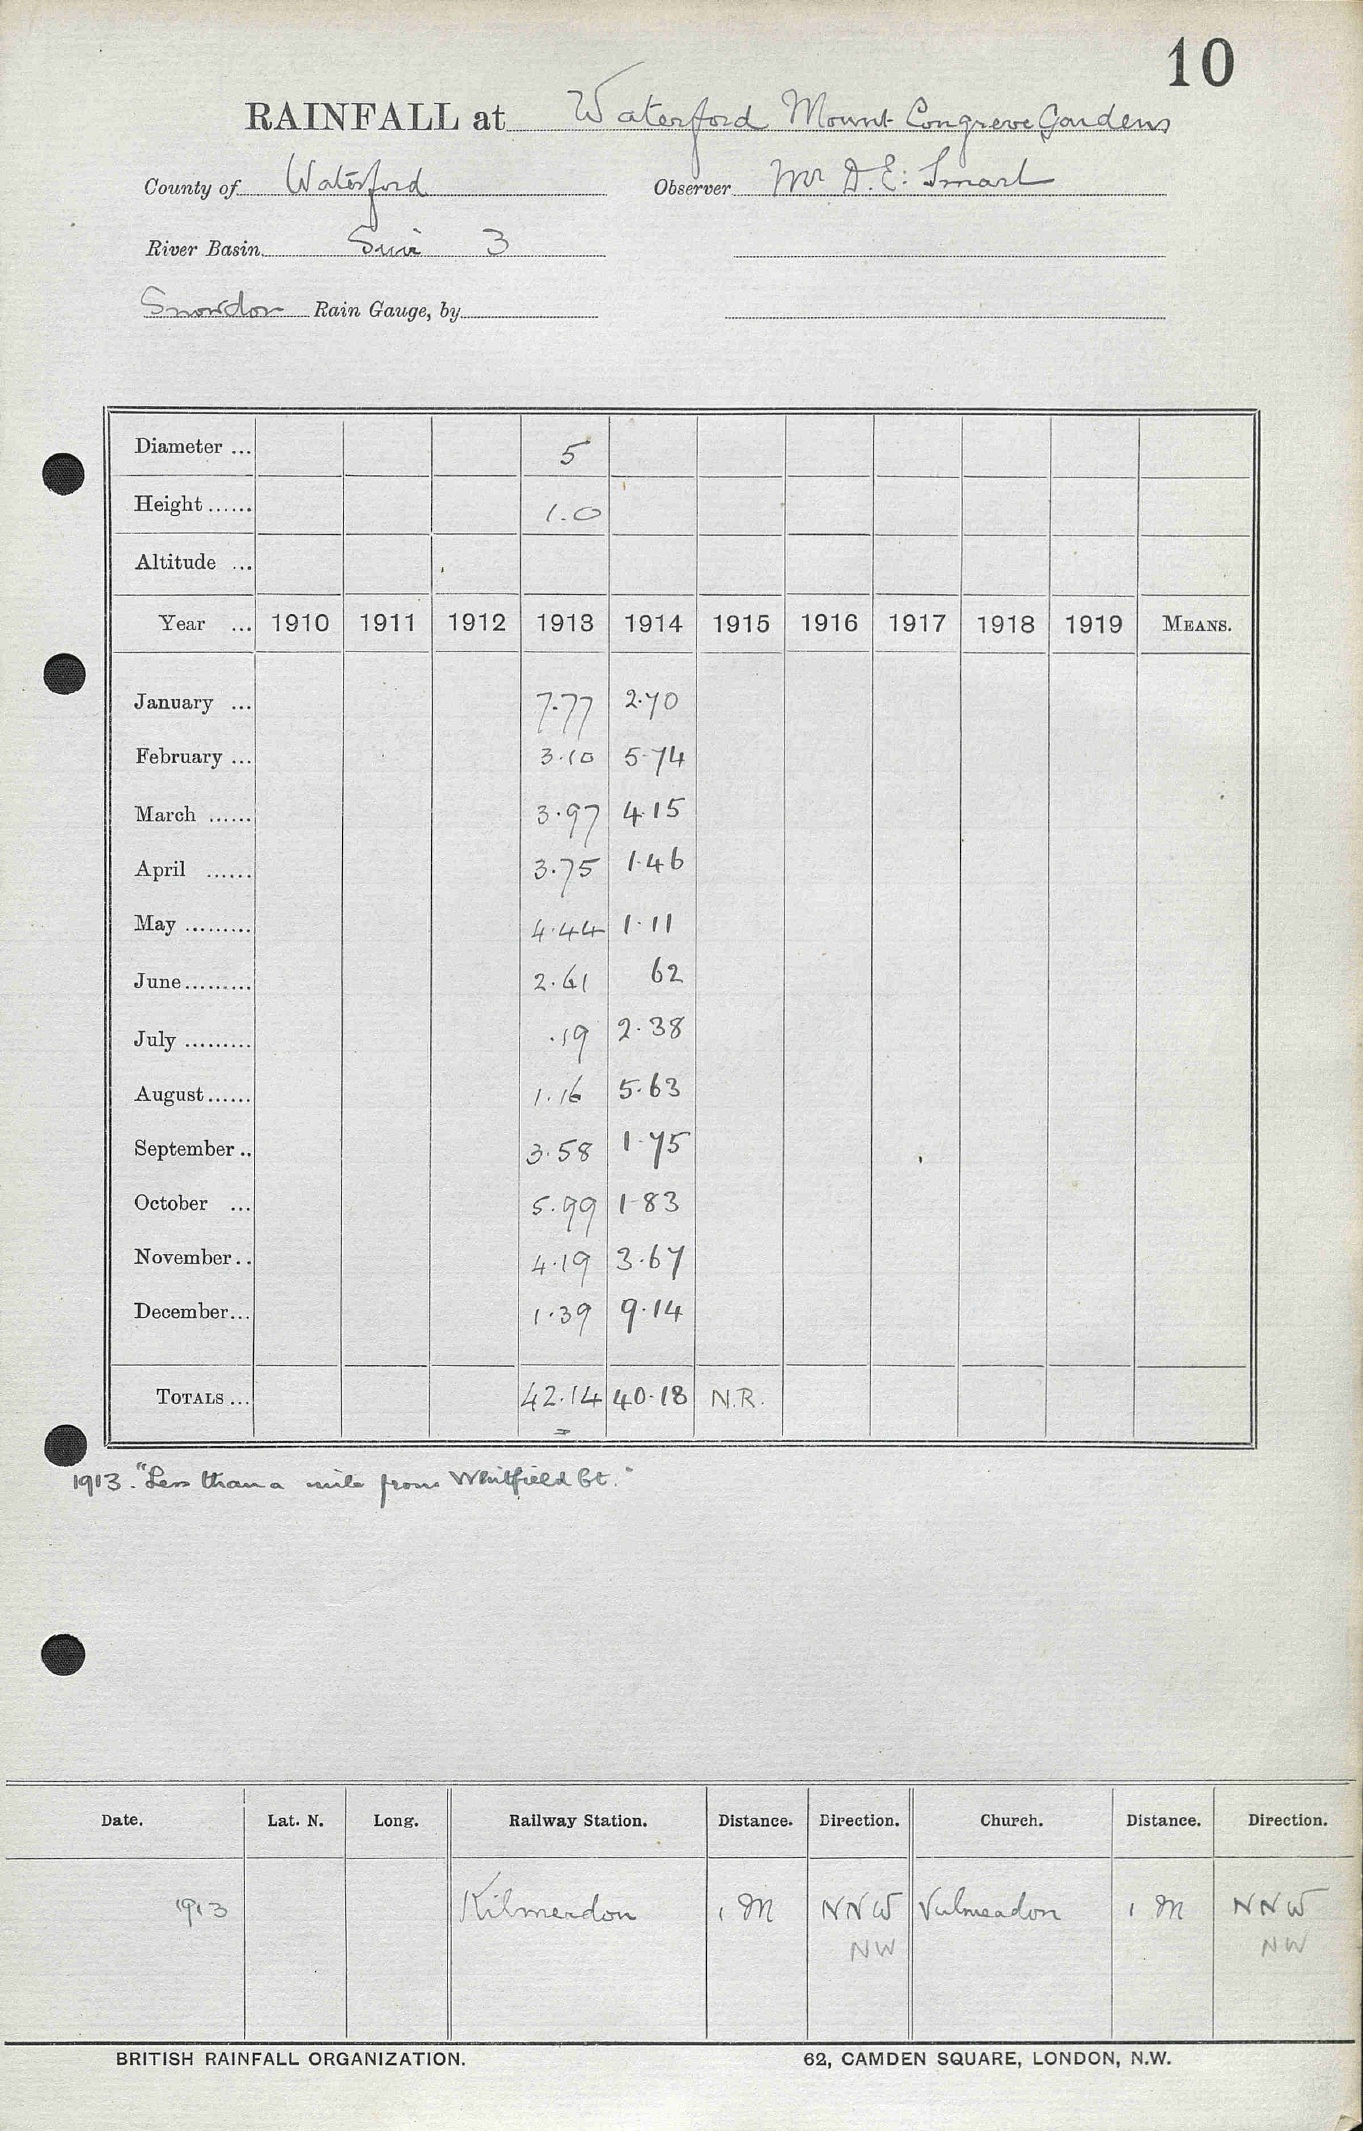 10
RAINFALL at Waterford Mount Congreve Gardens
County of Waterford Observer Mr D. E. Smart
River Basin Suir 3
Snowdon Rain Gauge, by
Diameter ... 5
Height ...... 1.0
Altitude ...
Year ... 1910 1911 1912 1913 1914 1915 1916 1917 1918 1919 MEANS.
January ... 7.77 2.70
February ... 3.10 5.74
March ...... 3.97 4.15
April ...... 3.75 1.46
May ......... 4.44 1.11
June ......... 2.61 62
July ......... .19 2.38
August ...... 1.16 5.63
September .. 3.58 1.75
October ... 5.99 1.83
November .. 4.19 3.67
December ... 1.39 9.14
TOTALS ... 42.14 40.18 N.R.
1913. "Less than a mile from Whitfield Ct."
Date. Lat. N. Long. Railway Station. Distance. Direction. Church. Distance. Direction.
1913 Kilmeadon 1 M NNW 1 M NNW
NW NW
BRITISH RAINFALL ORGANIZATION. 62, CAMDEN SQUARE, LONDON, N.W.